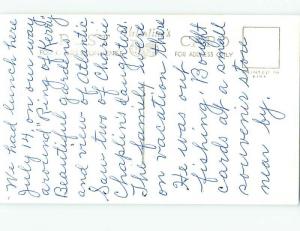 We had lunch here
July 14, on our way
around "Ring of Kerry".
Beautiful gardens
and view of Atlantic
Saw two of Charlie
Chaplin's daughters.
The family were
on vacation there
He was out
fishing! Bought
cards at a small
souvenir store
near by.
FOR ADDRESS ONLY
PRINTED IN